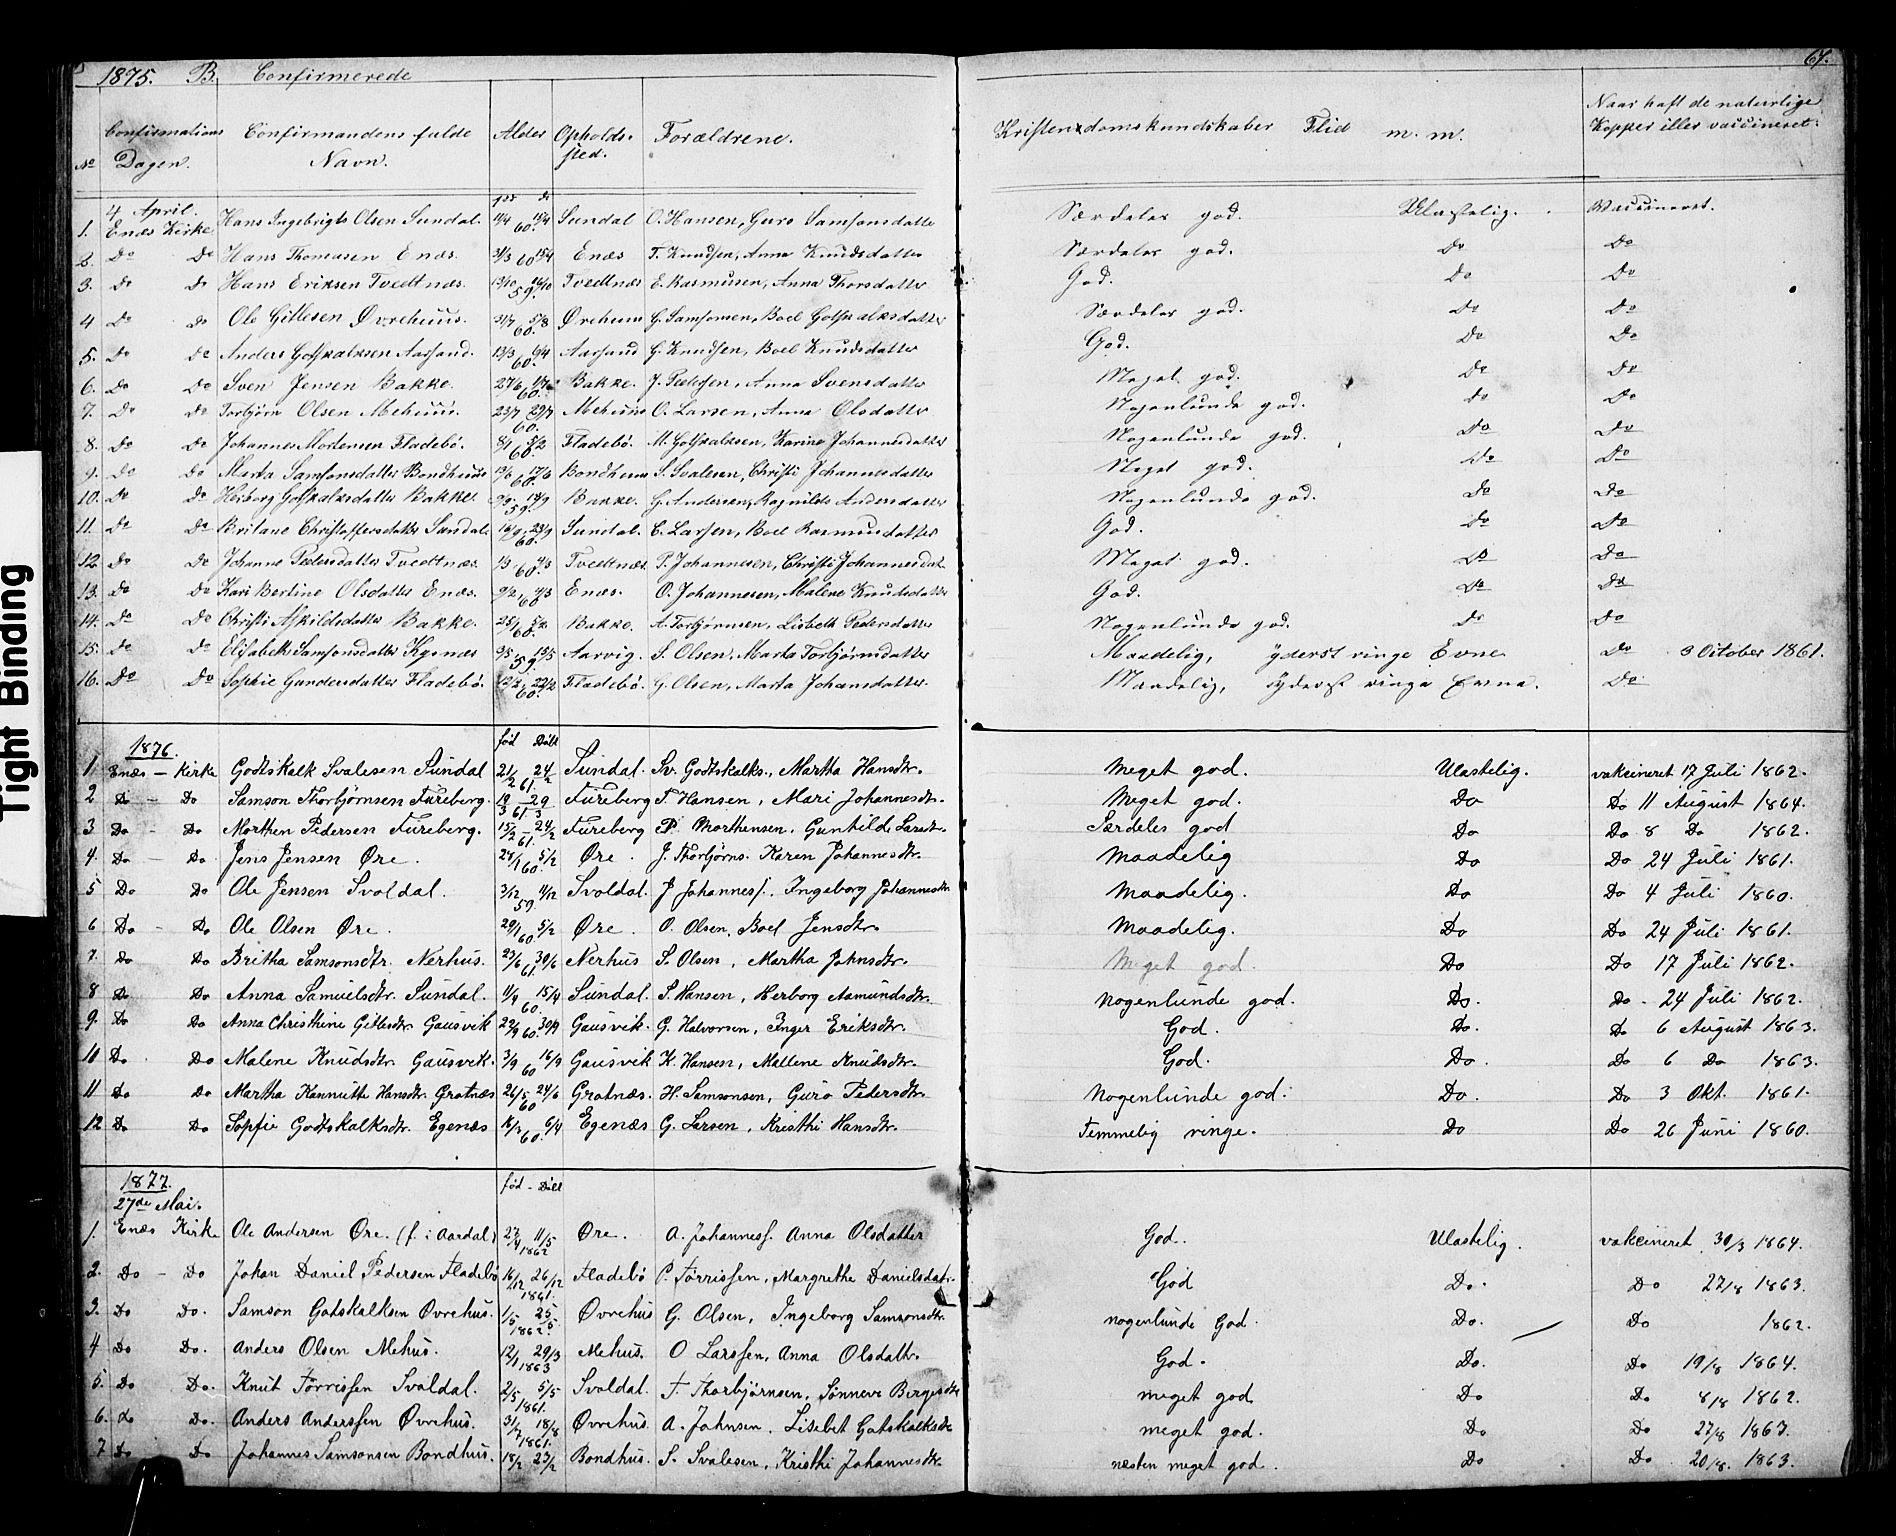 67.
1875. B. Confirmerede
No Confirmations Dagen. Confirmandens fulde Navn. Alder Opholdssted. Forældrene. Kristendomskundskaber Flid m. m. Naar haft de naturlige Kopper eller vaccineret.
4 April.
1. Enæs Kirke Hans Ingebrigts Olsen Sundal. 11/4 60. Sundal O. Hansen, Guro Samsonsdatter Særdeles god. Ulastelig. Vaccineret.
2. Do Do Hans Thomasen Enæs. 31/3 60 15/4 Enæs T. Knudsen, Anna Knudsdatter Særdeles god. Do Do
3. Do Do Hans Eriksen Tvedtnæs. 13/10 59. Tvedtnæs E. Rasmusen, Anna Thorsdatter God. Do Do
4 Do Do Ole Gitlesen Øvrehuus. 31/7 60. 5/8 Ørehuus G. Samsonsen, Boel Gotskalksdatter Særdeles god. Do Do
5. Do Do Anders Gotskalksen Aarsand. 13/3 60. 9/4 Aarsand G. Knudsen, Boel Knudsdatter God. Do Do
6. Do Do Sven Jensen Bakke. 27/6 60. 1/7 Bakke. J. Pedersen, Anna Svensdatter Meget god. Do Do
7. Do Do Torbjørn Olsen Mehuus. 23/7 60. 29/7 Mehuus O. Larsen, Anna Olsdatter Nogenlunde god. Do Do
8. Do Do Johannes Mortensen Fladebö. 8/1 60. 5/2 Fladebö. M. Gotskalksen, Karina Johannesdatter Nogenlunde god. Do Do
9. Do Do Marta Samsonsdatter Bondhuus 60. 17/6 Bondhuus S. Svalesen, Christi Johannesdatter Meget god. Do Do
10. Do Do Herborg Gotskalksdatter Bakke. 9/9 59. 18/9 Bakke. G. Andersen, Ragnilde Andersdatter Nogenlunde god. Do Do
11. Do Do Britane Christoffersdatter Sundal. 16/9 60. 23/9 Sundal. C. Larsen, Boel Rasmusdatter God. Do Do
12 Do Do Johanne Pedersdatter Tvedtnæs. 1/3 60. 4/3 Tvedtnæs P. Johannesen, Christi Johannesdat Meget god. Do Do
13. Do Do Kari Bertine Olsdatter Enæs. 9/2 60 4/3 Enæs. O. Johannesen, Malene Knudsdatter God. Do Do
14. Do Do Christi Askildsdatter Bakke. 25/1 60. 5/2 Bakke. A. Torbjörnsen, Lisbeth Pedersdatter Nogenlunde god. Do Do
15. Do Do Elisabeth Samsonsdatter Kysnæs 9/5 59. 19/5 Aarvig. S. Olsen, Marta Torbjörnsdatter Maadelig, yderst ringe Evne Do 3 October 1861.
16. Do Do Sophie Gundersdatter Fladebö. 12/2 60. 22/2 Fladebö. G. Olsen, Marta Johansdatter. Maadelig, yderst ringe Evne. Do
1876. föd Döbt
1 Enæs - Kirke Godtskalk Svalesen Sundal 21/2 61. 24/2 Sundal. Sv. Godtskalks., Martha Hansdtr. Meget god. Ulastelig. vakcineret 17 Juli 1862.
2 Do - Do Samson Thorbjørnsen Fureberg. 19/3 61. 29/3 Fureberg T. Hansen, Mari Johannesdtr. Meget god. Do Do 11 August 1864.
3 Do - Do Morthen Pedersen Fureberg. 15/2 61. 24/2 Fureberg P. Morthensen. Gunhilde Larsdtr. Særdeles god Do Do 8 Do 1862.
4. Do - Do Jens Jensen Øre. 28/1 60. 5/2 Øre. J. Thorbjørns. Karen Johannesdtr. Maadelig Do Do 24 Juli 1861.
5 Do Do Ole Jensen Svoldal. 3/12 59 11/12 Svoldal. J Johanness. Ingeborg Johannesdtr Maadelig. Do Do 4 Juli 1860.
6 Do - Do Ole Olsen Øre. 29/1 60. 5/2 Øre. O. Olsen, Boel Jensdtr. Maadelig. Do Do 24 Juli 1861.
7. Do Do Britha Samsonsdtr. Nerhus. 23/6 61. 30/6 Nerhus S. Olsen, Martha Johnsdtr. Meget god. Do Do 17 Juli 1862.
8 Do Do Anna Samuelsdtr. Sundal. 11/4 60. 15/4 Sundal. S. Hansen, Herborg Aamundsdtr. Nogenlunde god. Do. Do - 24 Juli 1862.
9. Do Do Anna Christhine Gitlesdtr. Gausvik 22/9 60. 30/9 Gausvik. G. Halvorsen, Inger Eriksdtr. God. Do. Do 6 August 1863.
10 Do Do Malene Knudsdtr. Gausvik. 3/9 60 16/9 Gausvik K. Hansen, Mallene Knudsdtr. God. Do. Do 6 Do 1863.
11 Do Do Martha Kannutte Hansdtr. Grotnæs 26/5 60 24/6 Grotnæs. H. Samsonsen, Guro Pedersdtr. Nogenlunde god. Do. Do 3 Okt. 1861.
12 Do Do Sopfie Godtskalksdtr. Egenæs 16/3 60. 6/4 Egenæs G. Larsen, Kristhi Hansdtr. Temmelig ringe. Do Do 26 Juni 1860.
1877. föd - Döbt
27de Mai.
1. Enæs Kirke Ole Andersen Øre. (f. i Aardal) 27/4 1862 11/5 Øre. A. Johanness. Anna Olsdatter God. Ulastelig. vakcineret 30/3 1864.
2. Do - Do Johan Daniel Pedersen Fladebö 16/12 1861. 26/12 Fladebö P. Tørrissen, Margrethe Danielsdatr. God Do. Do 27/8 1863.
3. Do Do. Samson Gotskalksen Øvrehus. 1/5 1862. 25/5 Øvrehus G. Olsen, Ingeborg Samsonsdtr. nogenlunde God. Do. Do 1862.
4 Do Do. Anders Olsen Mehus. 12/1 1863 29/3 Mehus. O Larssen, Anna Olsdattr. God. Do. Do 19/8 1864.
5. Do Do. Knut Tørrissen Svoldal. 2/5 1861. 5/5 Svoldal. T. Thorbjørnsen, Sönneve Bergesdtr meget god Do Do 8/8 1862.
6. do Do. Anders Anderssen Øvrehus. 31/7 1861. 18/8 Øvrehus. A. Johnsen. Lisebet Gotskalksdtr meget god. Do Do 27/8 1863.
7 Do Do Johannes Samsonsen Bondhus. 18/2 23/2 Bondhus. S. Svalesen, Kristhi Johannesdtr. næsten meget god. Do Do 20/8. 1863.
Tight Binding